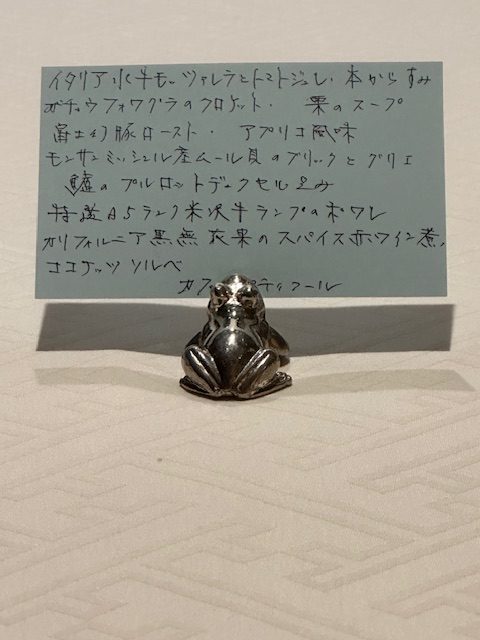 イタリア水牛モッツァレラとトマトジュレ 本からすみ
ガチョウフォワグラのクロケット・ 栗のスープ
富士幻豚ロースト・ アプリコ風味
モンサンミッシェル産ムール貝のブリックとグリエ
鱸の
特選A5ランク米沢牛ランプのポワレ
カリフォルニア黒無花果のスパイス赤ワイン煮、
ココナッツ ソルベ
カフェ